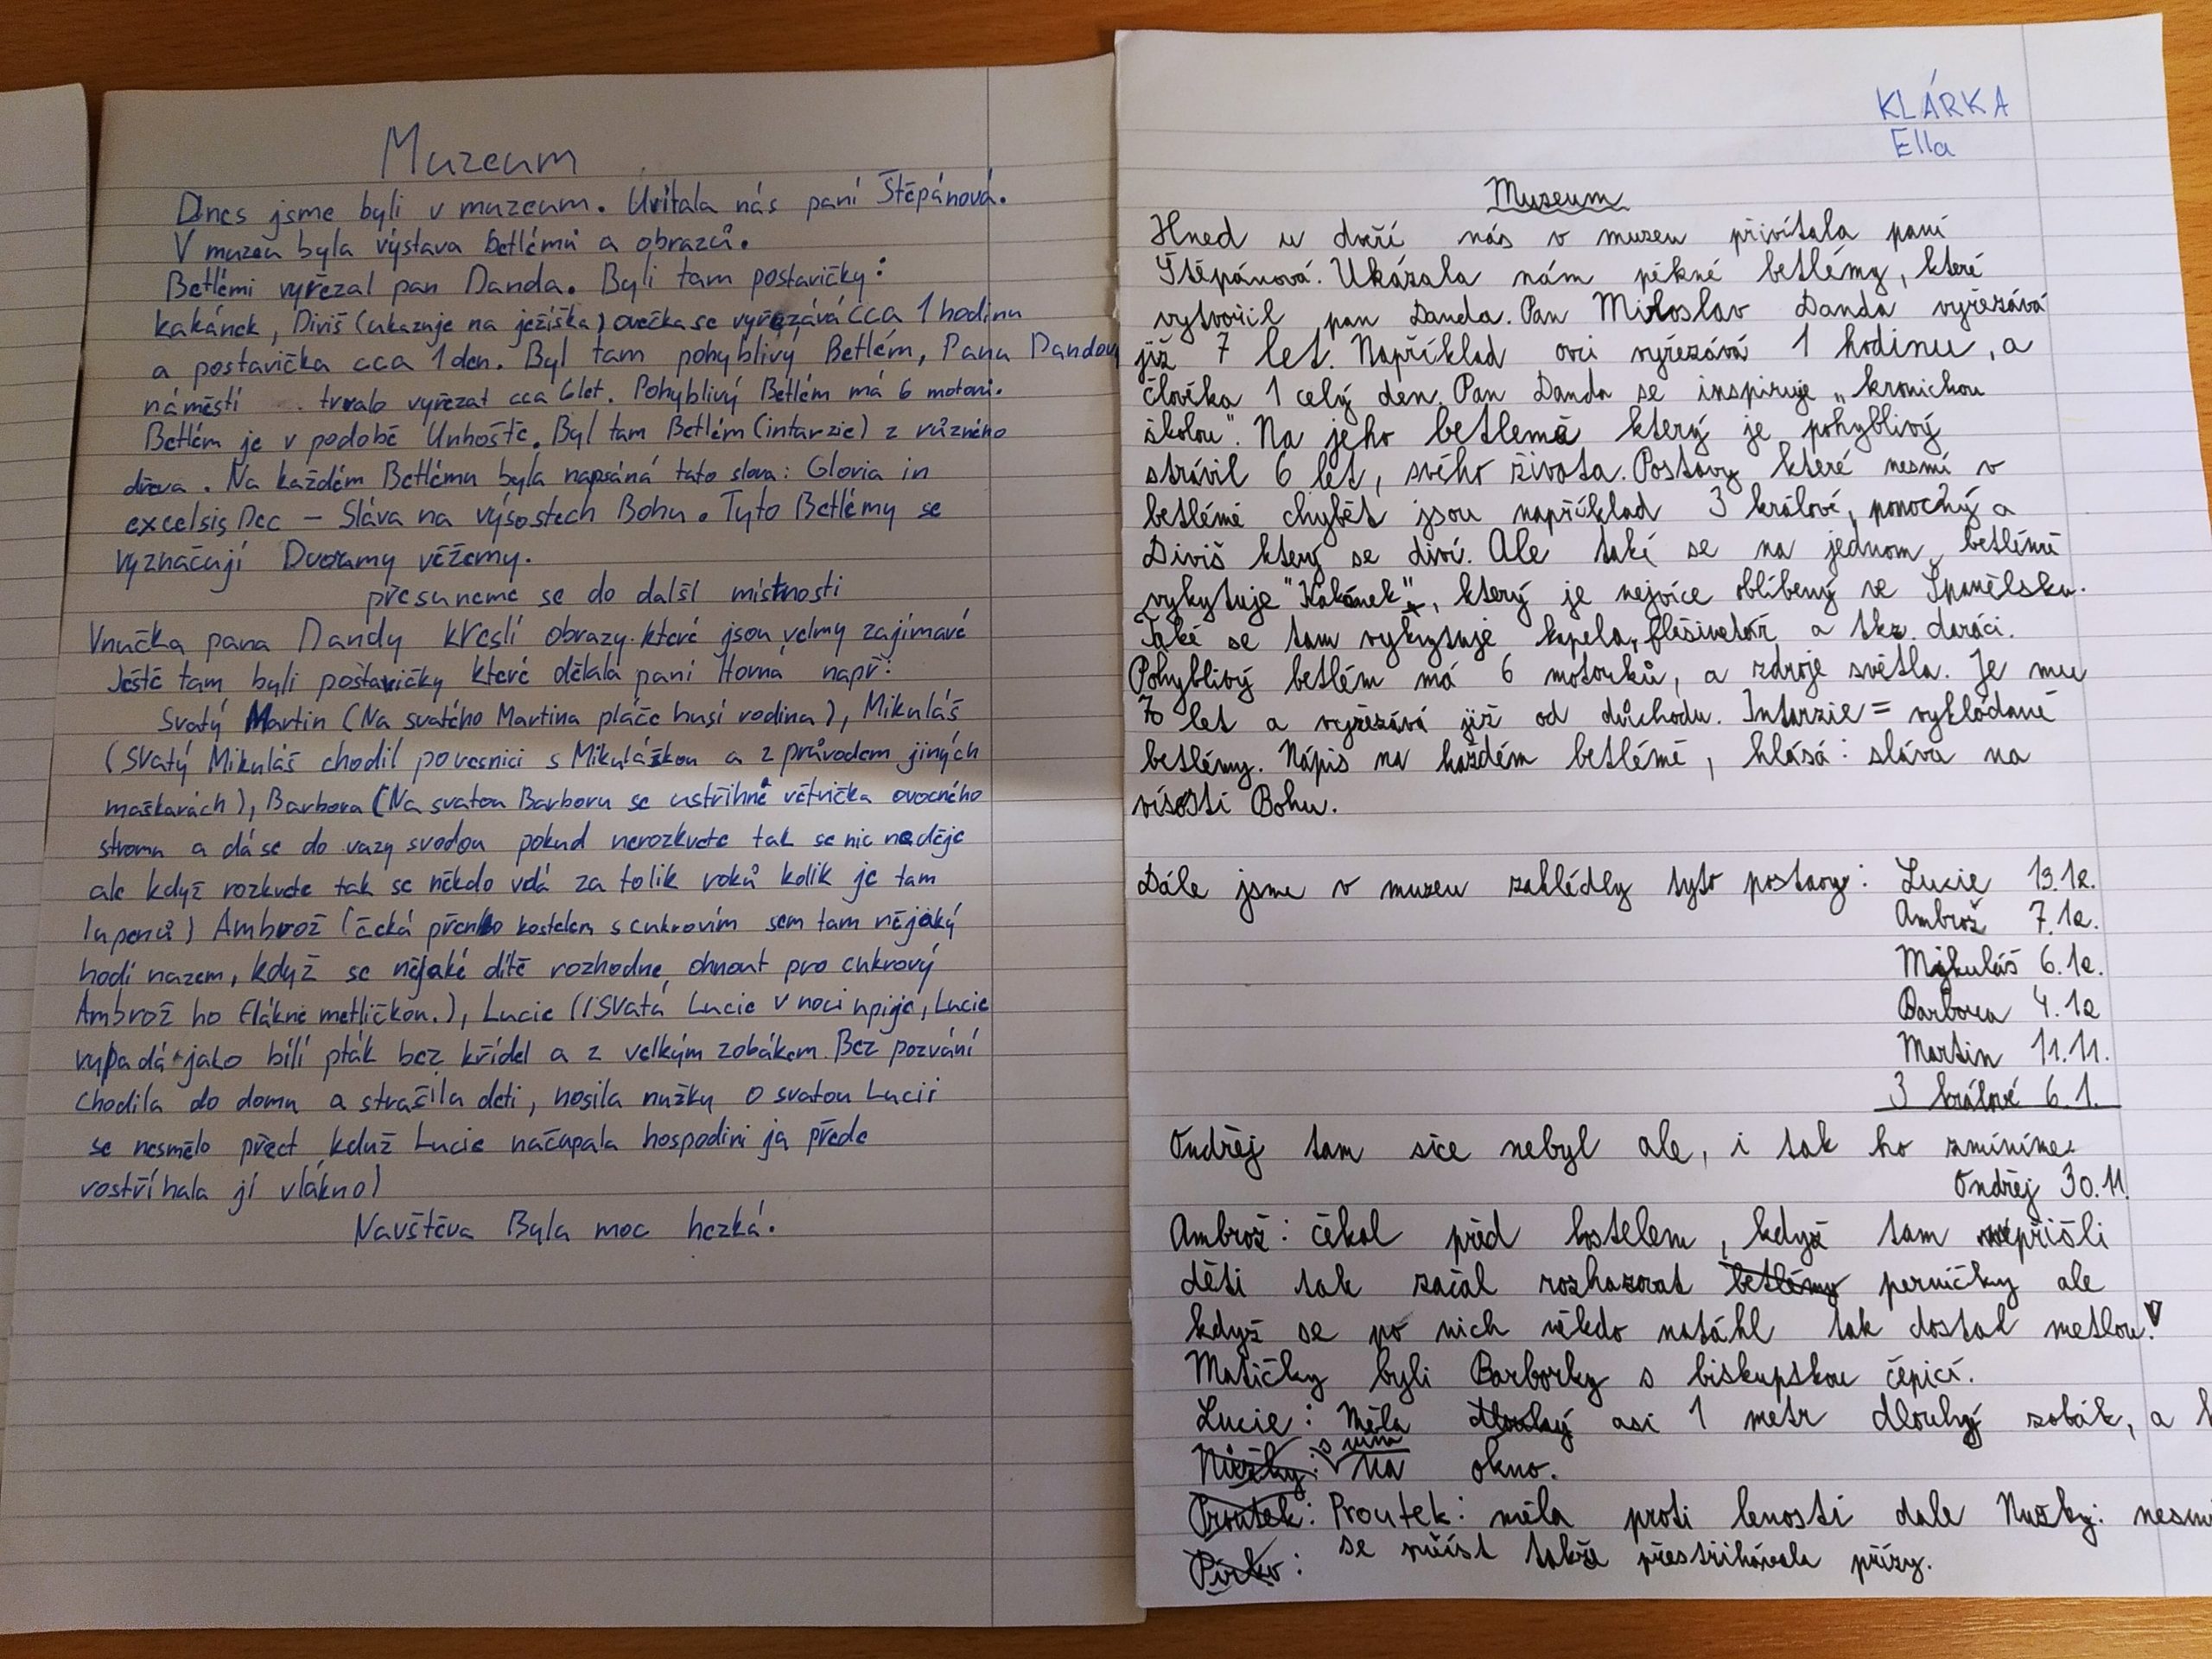 Muzeum
Dnes jsme byli v muzeum. Uvítala nás paní Štěpánová.
V muzeu byla výstava betlémů a obrazů.
Betlémi vyřezal pan Danda. Byli tam postavičky:
kakánek, Diviš (ukazuje na ježíška) ovečka se vyřezává cca 1 hodinu
a postavička cca 1 den. Byl tam pohyblivý Betlém, Panu Dandovi
náměstí trvalo vyřezat cca 6 let. Pohyblivý Betlém má 6 motorů.
Betlém je v podobě Unhoště. Byl tam Betlém (intarzie) z různého
dřeva. Na každém Betlému byla napsáná tato slova: Gloria in
excelsis Deo – Sláva na výsostech Bohu. Tyto Betlémy se
vyznačují Dvoumy věžemy.
přesuneme se do další místnosti
Vnučka pana Dandy kreslí obrazy které jsou velmy zajímavé
Ještě tam byli postavičky které dělala paní Horna např:
Svatý Martin (Na svatého Martina pláče husí rodina), Mikuláš
(svatý Mikuláš chodil povesnici s Mikuláškou a z průvodem jiných
maškarách), Barbora (Na svatou Barboru se ustřihně větvička ovocného
stromu a dá se do vazy svodou pokud nerozkvete tak se nic neděje
ale když rozkvete tak se někdo vdá za tolik roků kolik je tam
lupenů) Ambrož (čeká před kostelem s cukrovím sem tam nějaký
hodí nazem, když se nějaké dítě rozhodne ohnout pro cukrový
Ambrož ho flákne metličkou.), Lucie ((svatá Lucie v noci upije, Lucie
vypadá jako bílí pták bez křídel a z velkým zobákem. Bez pozvání
chodila do domu a strašila deti, nosila nužky o svatou Lucii
se nesmělo přect když Lucie načapala hospodini ja přede
rostříhala jí vlákno)
Navštěva Byla moc hezká.
KLÁRKA
Ella
Muzeum
Hned u dveří nás v muzeu přivítala paní
Štěpánová. Ukázala nám pěkné betlémy, které
vytvořil pan Danda. Pan Miloslav Danda vyřezává
již 7 let. Například ovci vyřezává 1 hodinu, a
člověka 1 celý den. Pan Danda se inspiruje „kronichou
školou". Na jeho betlemě který je pohyblivý
strávil 6 let, svého života. Postavy které nesmí v
betlémě chybět jsou například 3 králové, ponocný a
Diviš který se diví. Ale také se na jednom betlémě
vykytuje "Kakánek", který je nejvíce oblíbený ve Španělsku.
Také se tam vykytuje kapela, flešinetár a tkz. daráci.
Pohyblivý betlém má 6 motorků, a zdroje světla. Je mu
70 let a vyřezává již od důchodu. Intarzie = vykládané
betlémy. Nápis na každém betlémě, hlásá: sláva na
vísosti Bohu.
Dále jsme v muzeu zahlédly tyto postavy: Lucie 13.12.
Ambrož 7.12.
Mikuláš 6.12.
Barbora 4.12
Martin 11.11.
3 králové 6.1.
Ondřěj tam sice nebyl ale, i tak ho zmíníme:
Ondřěj 30.11.
Ambrož: čekal před kostelem, když tam přišli
děti tak začal rozhazovat betlémy perníčky ale
když se po nich někdo natáhl tak dostal metlou!
Matičky byli Barborky s biskupskou čepicí.
Lucie: Měla dlouhý asi 1 metr dlouhý zobák, a
Nůžky: na okno.
Proutek: Proutek: měla proti lenosti dale Nužky: nesm
Pírko: se příst takže přestřihávala přízy.